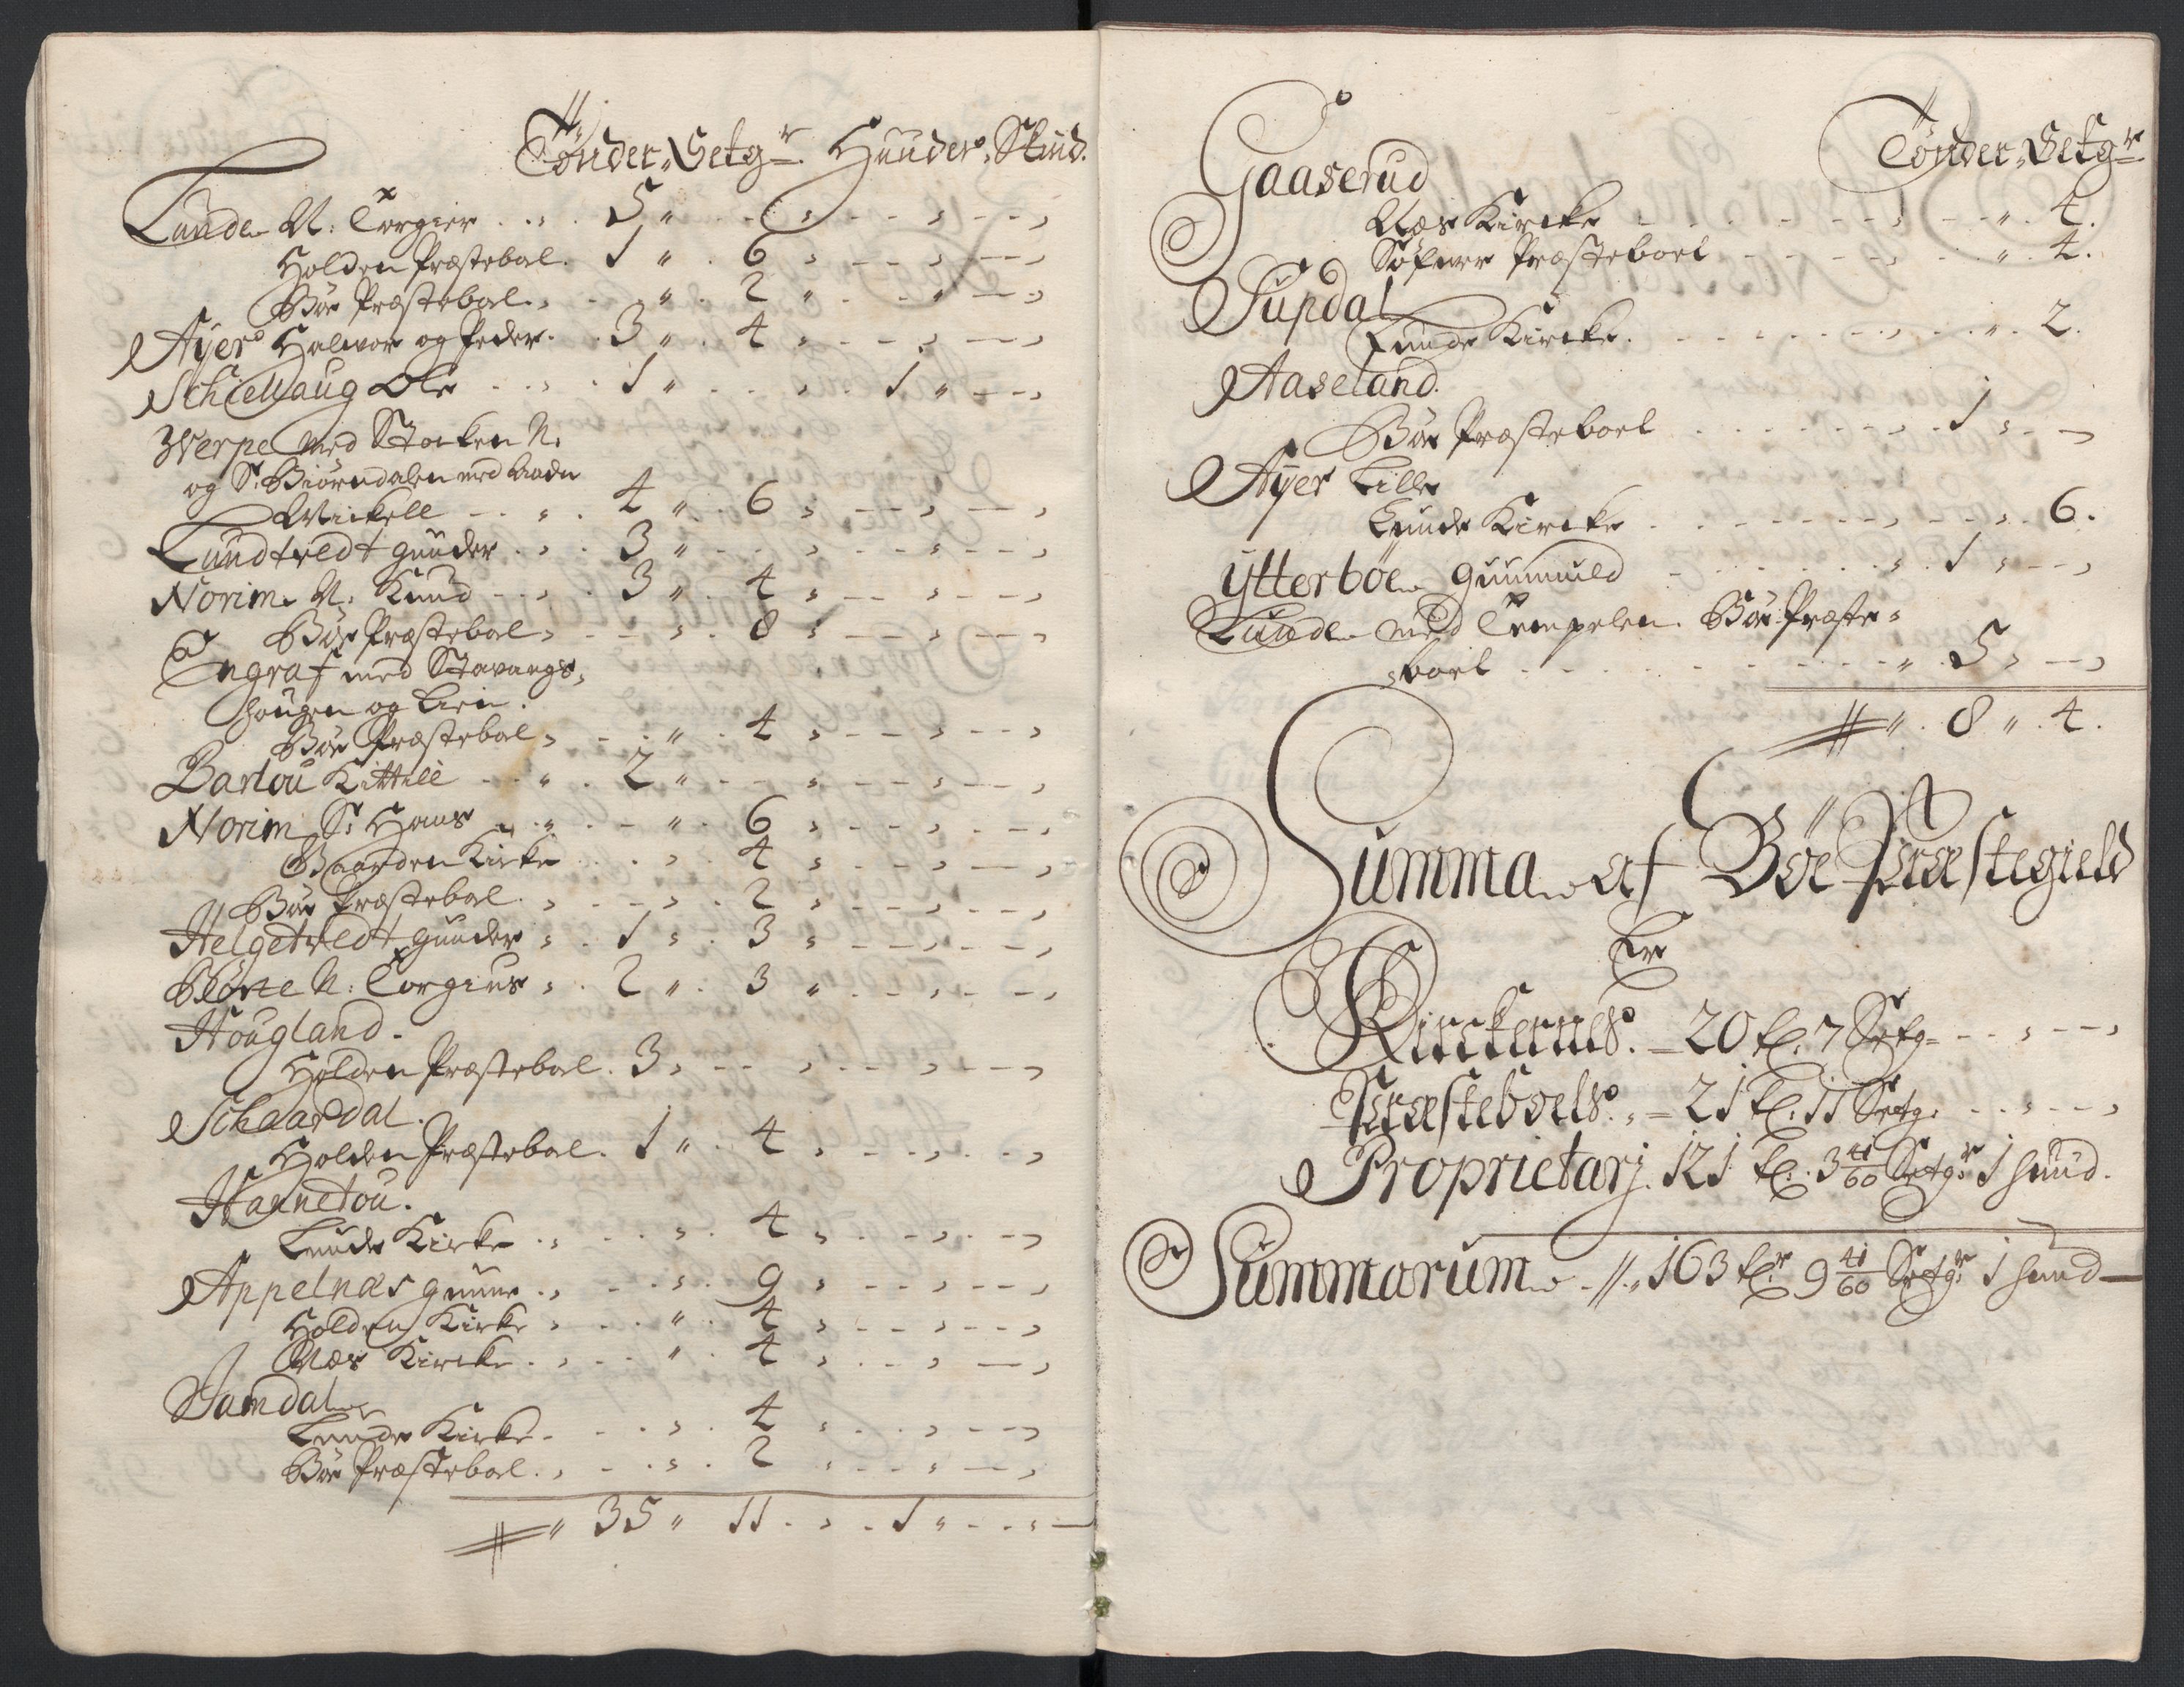 Tønder, Setg.r Huuder, Skind.
Lunde N: Torgier . . 5 "
Holden Præstebol. 1 " 6
Bøe Præstebol. " 2 "
Aÿer Halvor og Peder. 3 " 4
Schiellaug Ole . . 1 " . . 1 "
Werpe med Stocken N:
og S: Biørndalen med
Mickell . . 4 " 6
Lundtvedt Gunder . . 3 "
Norim N: Knud . . 3 " 4
Bøe Præstebol . . 8
Engraf med Stavangs,
hougen og Lien.
Bøe Præstebol, " 4
Bartou Kittill . . 2 "
Norim S: Hans . . " 6
Kirke . . 4
Bøe Præstebol . . 2
Helgetvedt Gunder . 1 . 3
N: Torgius . 2 " 3 "
Hougland.
Holden Præstebol. 3
Schaardal.
Holden Præstebol. 1 " 4
Hannetou.
Lunde Kirke . . 4
Appelnæs . . 9
Holden Kirke . . " 4
Næs Kircke . . " 4
Jamdal
Lunde Kirke . . 4
Bøe Præstebol . . 2
" 35 " 11 . . 1 "
Tønder, Setg.r
Gaaserud
Næs Kircke . . " 4.
Præsteboel . . " 4.
Supdal
Lunde Kircke . . " 2.
Aaseland.
Bøe Præsteboel . . 1
Aÿer Lille
Lunde Kircke . . 6.
Ytterbøe Gunnuld . . 1
Lunde med Tempelen. Bøe Præste-
boel . . " 5
" 8 " 4.
Summa af Bøe Præstegield
Er
Kirckernes. - 20 td. 7 Setg.
Præsteboels. - 21 td. 11 Setg.
Proprietarj. 121 td. 3 41/60 Setg.r 1 huud.
Summarum 163 td.r 9 41/60 Setg.r 1 huud